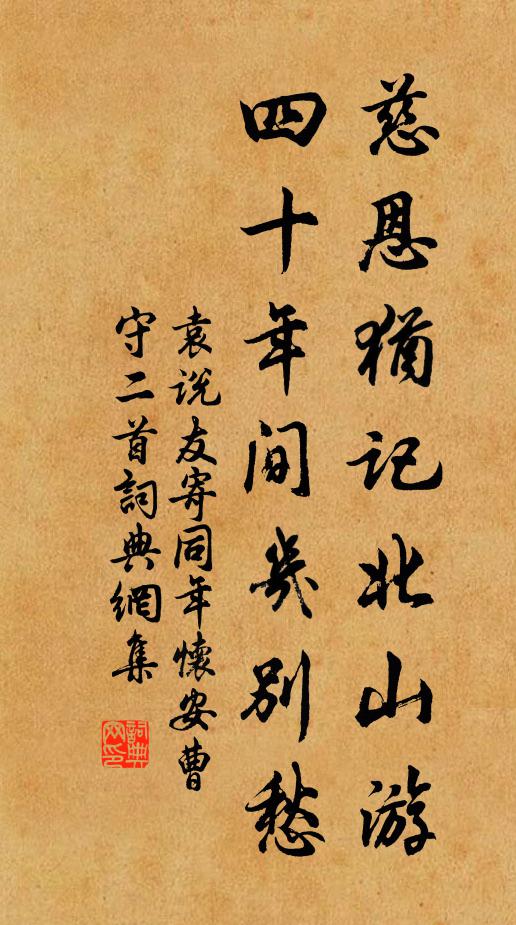 慈恩猶記北山游
四十年间幾別愁
袁说友寄同年懷安曹
守二首詞典網集
詞典网印